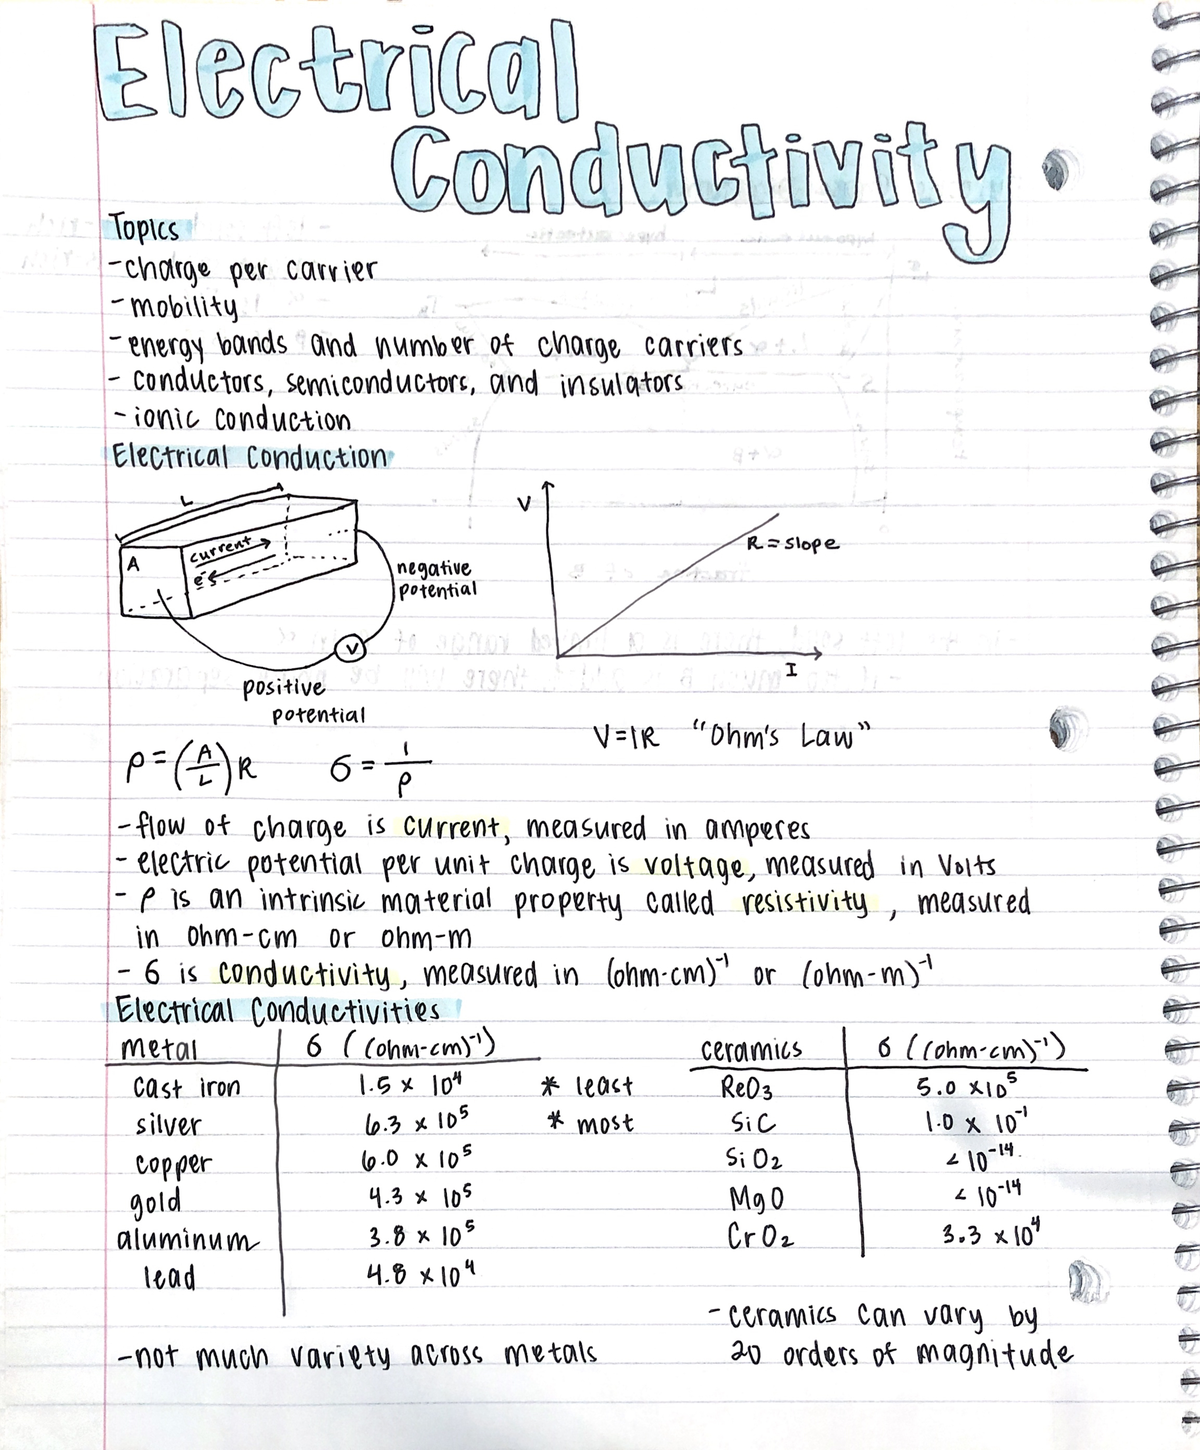 Electrical
Conductivity
Topics
-charge per carrier
-mobility
-energy bands and number of charge carriers
- conductors, semiconductors, and insulators
-ionic conduction
Electrical Conduction
L
A
current
e⁻s
V
negative
potential
positive
potential
V
R = slope
I
V=IR "Ohm's Law"
ρ=(A/L)R σ = 1/ρ
-flow of charge is current, measured in amperes
- electric potential per unit charge is voltage, measured in Volts
- ρ is an intrinsic material property called resistivity, measured
in Ohm-cm or ohm-m
- σ is conductivity, measured in (ohm-cm)⁻¹ or (ohm-m)⁻¹
Electrical Conductivities
metal σ ((ohm-cm)⁻¹)
cast iron 1.5 x 10⁴ * least
silver 6.3 x 10⁵ * most
copper 6.0 x 10⁵
gold 4.3 x 10⁵
aluminum 3.8 x 10⁵
lead 4.8 x 10⁴
-not much variety across metals
ceramics σ ((ohm-cm)⁻¹)
ReO3 5.0 x10⁵
SiC 1.0 x 10⁻¹
SiO2 < 10⁻¹⁴
MgO < 10⁻¹⁴
CrO2 3.3 x 10⁴
-ceramics can vary by
20 orders of magnitude